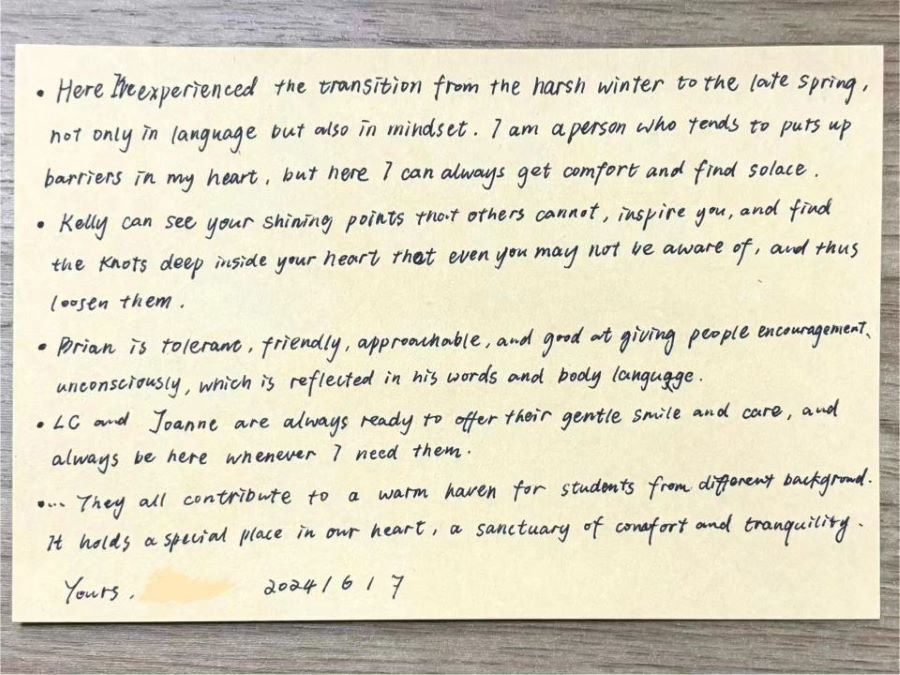 • Here I've experienced the transition from the harsh winter to the late spring,
not only in language but also in mindset. I am a person who tends to puts up
barriers in my heart, but here I can always get comfort and find solace.
• Kelly can see your shining points that others cannot, inspire you, and find
the knots deep inside your heart that even you may not be aware of, and thus
loosen them.
• Brian is tolerant, friendly, approachable, and good at giving people encouragement,
unconsciously, which is reflected in his words and body langugge.
• LC and Joanne are always ready to offer their gentle smile and care, and
always be here whenever I need them.
•... They all contribute to a warm haven for students from different background.
It holds a special place in our heart, a sanctuary of comfort and tranquility.
Yours, 2024/6/7